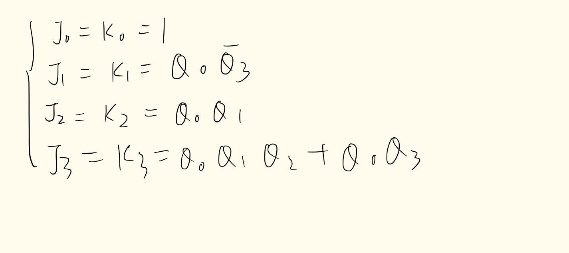 J₀ = K₀ = 1
J₁ = K₁ = Q₀Q̄₃
J₂ = K₂ = Q₀Q₁
J₃ = K₃ = Q₀Q₁Q₂ + Q₀Q₃